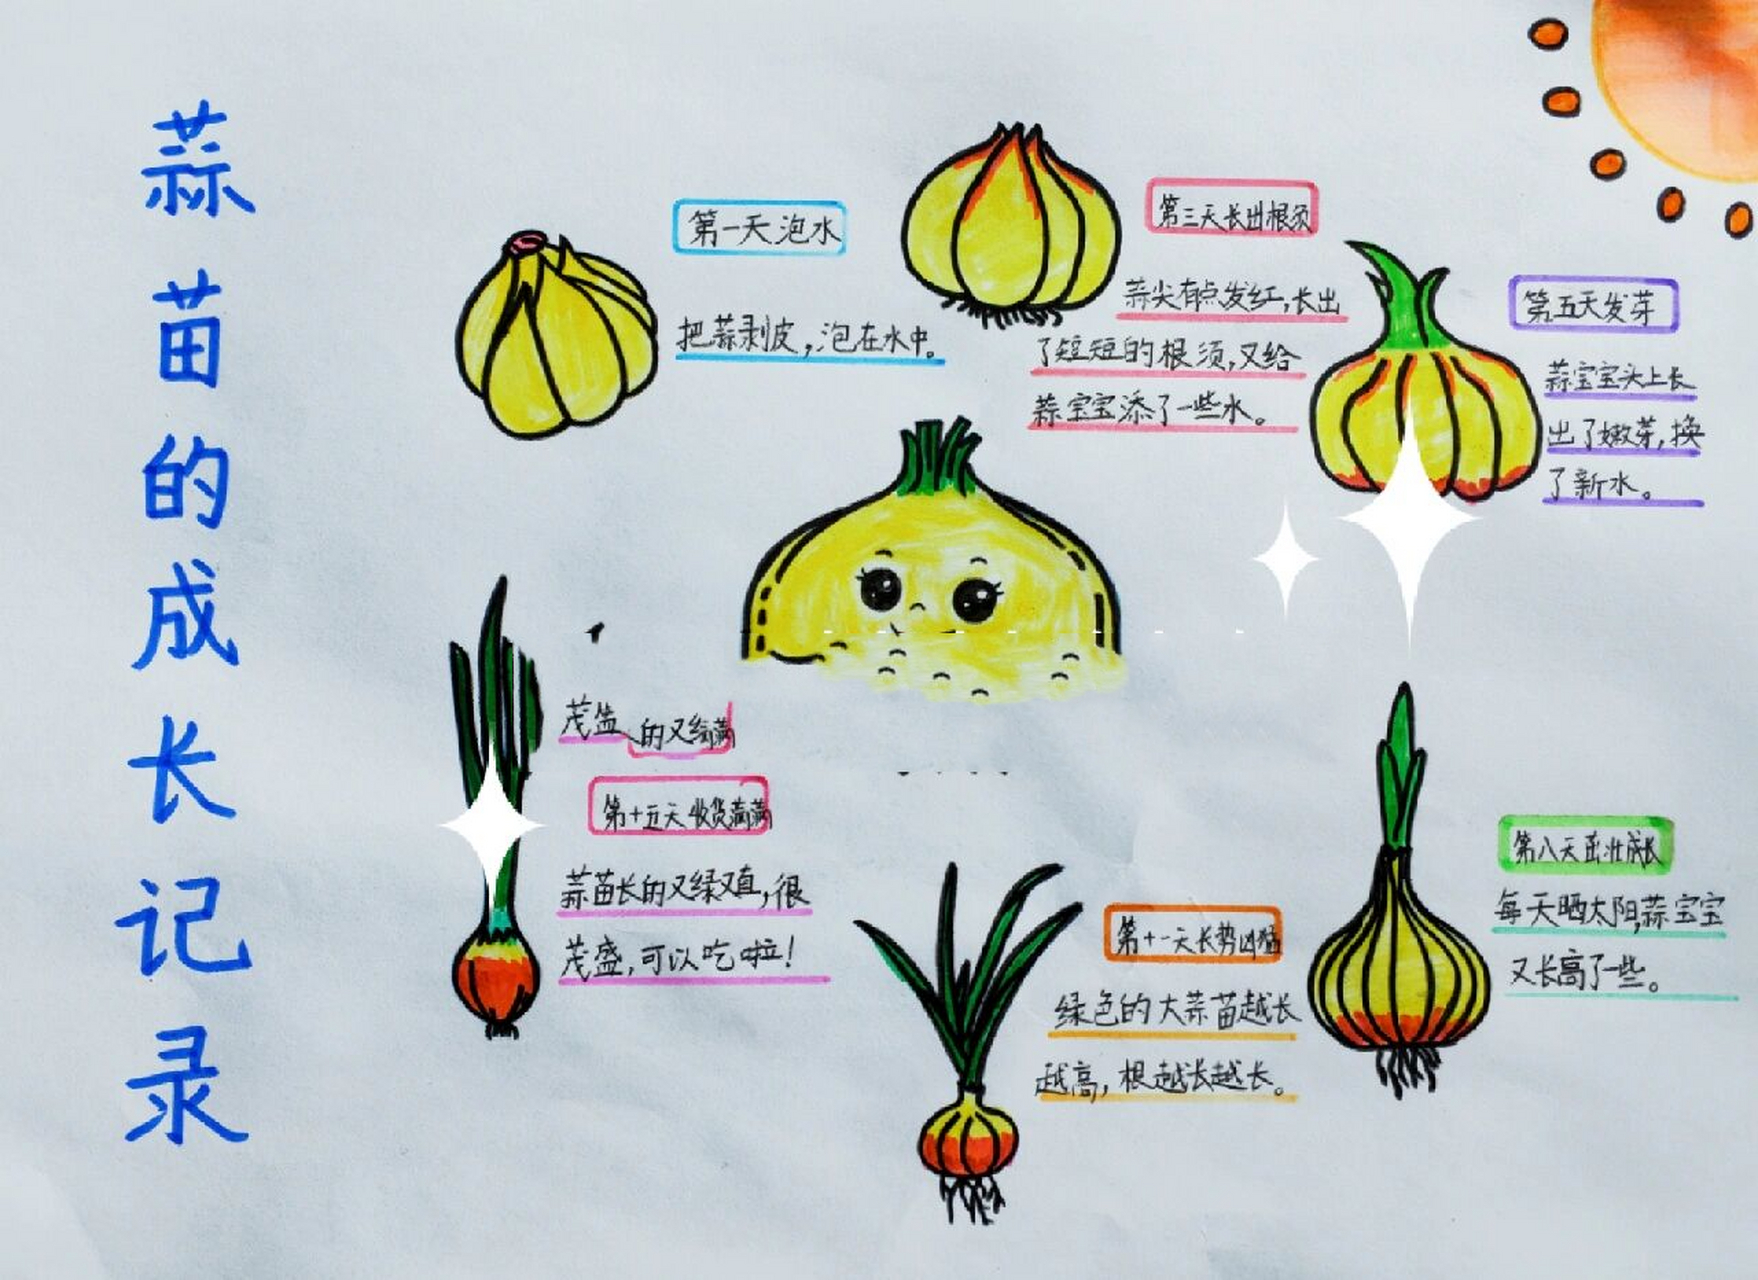 蒜苗的成长记录
第一天泡水
把蒜剥皮，泡在水中。
第三天长出根须
蒜尖有点发红，长出
了短短的根须，又给
蒜宝宝添了一些水。
第五天发芽
蒜宝宝头上长
出了嫩芽，换
了新水。
第八天茁壮成长
每天晒太阳，蒜宝宝
又长高了一些。
第十一天长势凶猛
绿色的大蒜苗越长
越高，根越长越长。
茂盛 的又 满
第十五天收货满满
蒜苗长的又绿又直，很
茂盛，可以吃啦！